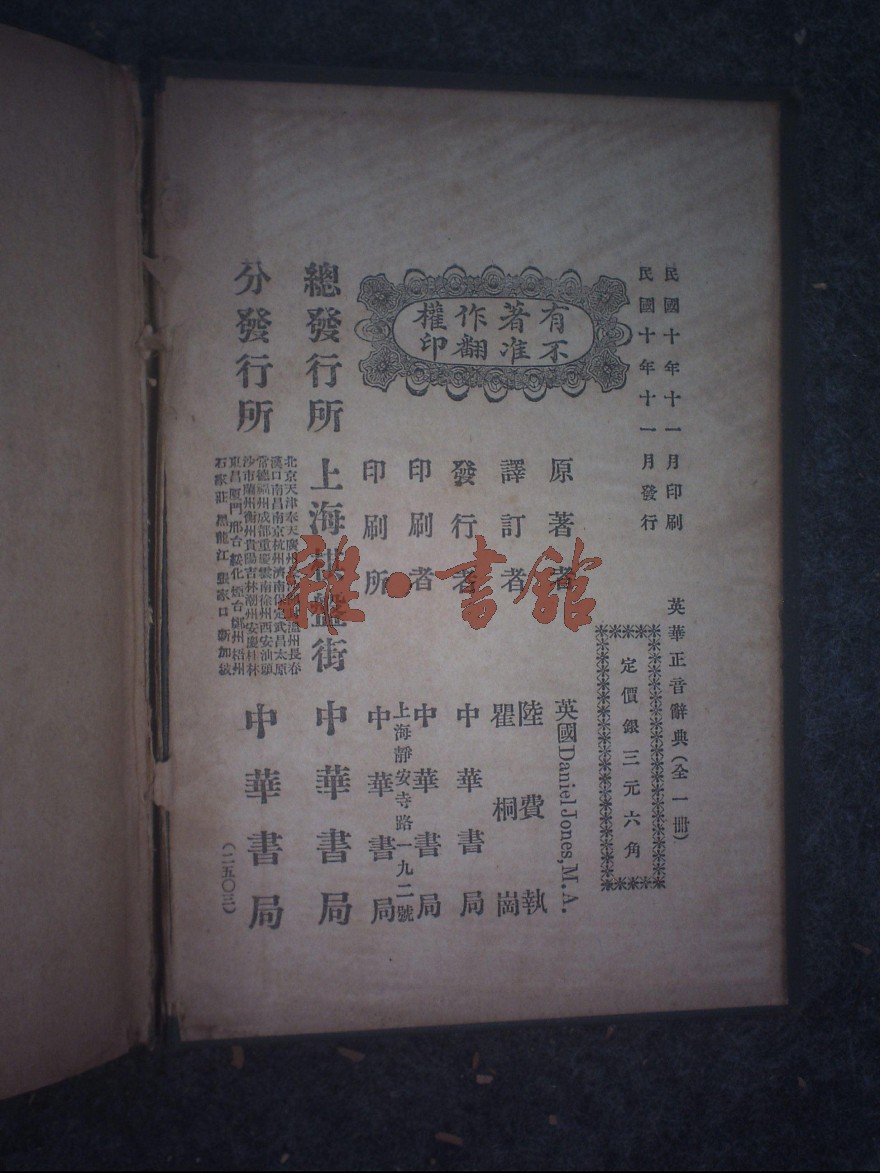 民國十年十一月印刷
民國十年十一月發行
英華正音辭典(全一冊)
定價銀三元六角
有著作權
不准翻印
原著者 英國Daniel Jones, M.A.
譯訂者 陸費執
瞿桐崗
發行者 中華書局
印刷者 中華書局
上海靜安寺路一九二號
印刷所 中華書局
總發行所 上海棋盤街 中華書局
分發行所
北京天津奉天廣州 溫州長春
漢口南昌南京杭州濟南保定武昌太原
常德福州成都重慶雲南徐州西安汕頭
沙市蘭州衡州貴陽吉林潮州安慶桂林
東昌廈門邢台綏化煙台鄭州梧州
石家莊 黑龍江 張家口 新加坡
中華書局
(二五〇三)
雜·書館